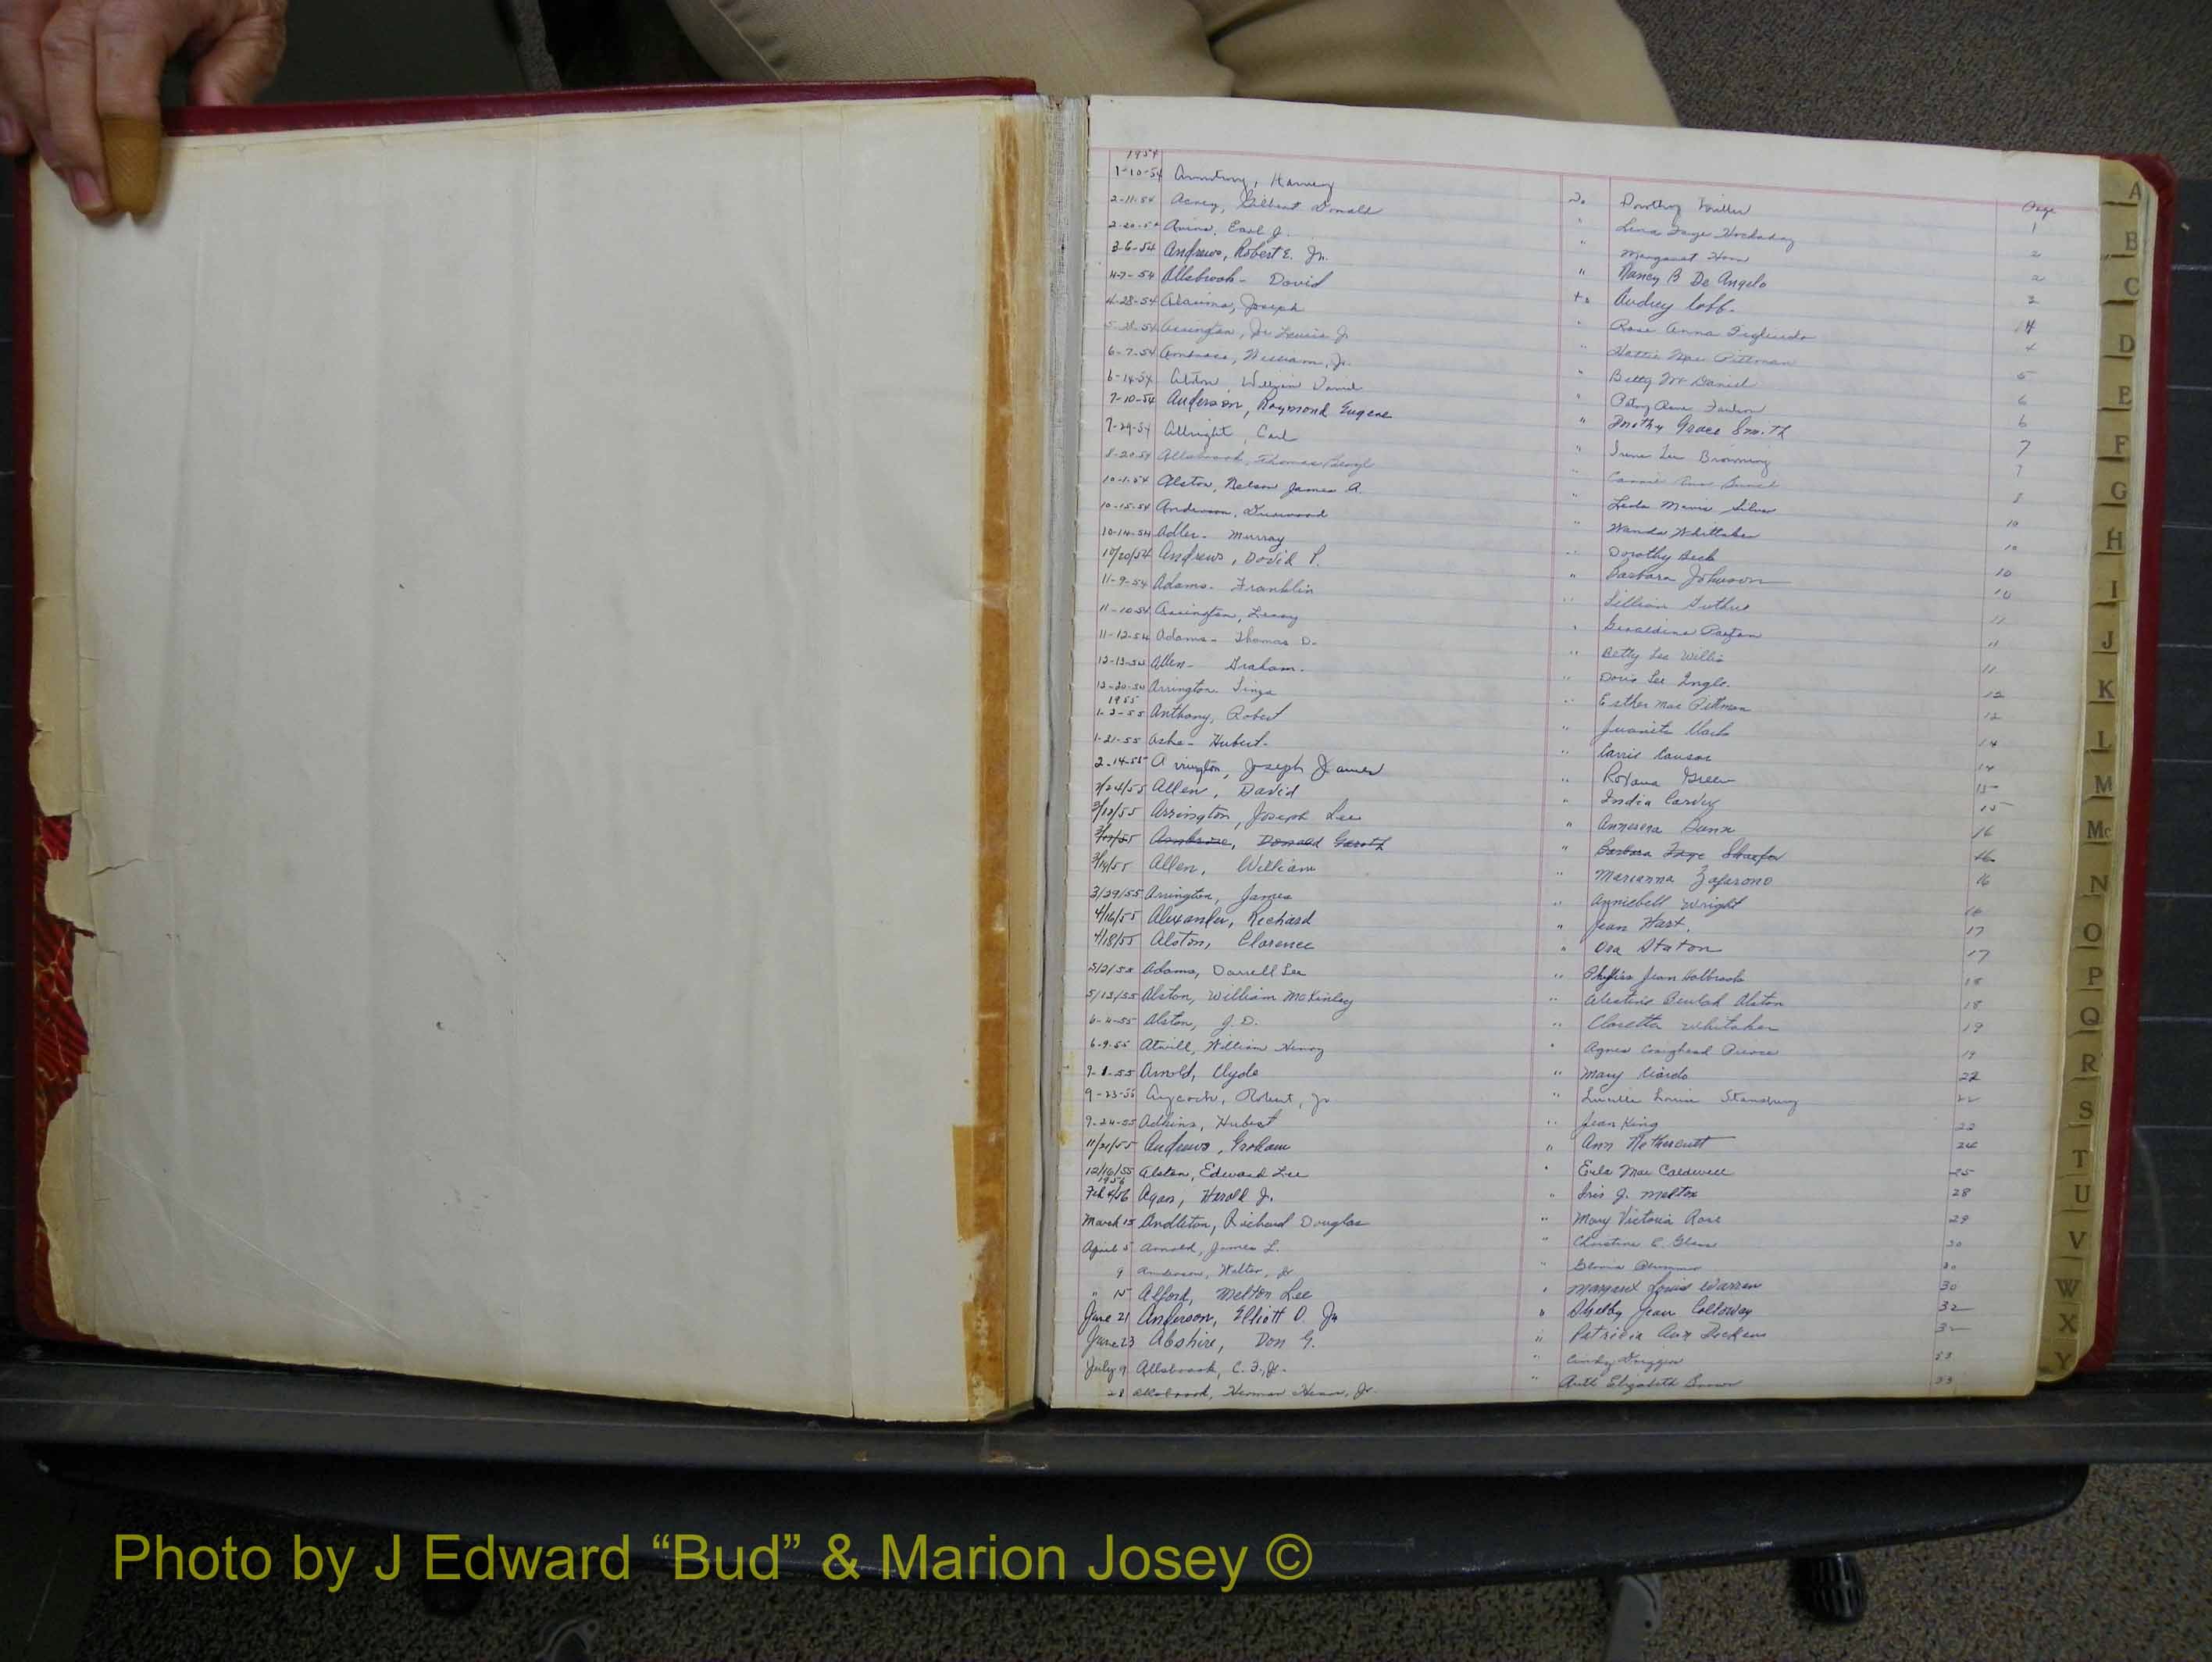 1954
1-10-54 Armstrong, Harvey to Dorothy Page
2-11-54 Acney, Gilbert Donald " Lena Faye Hockaday 1
2-20-54 Avins, Earl J. " Margaret 2
3-6-54 Andrews, Robert E. Jr. " Nancy B De Angelo 2
4-7-54 Allsbrook - David to Audrey Cobb. 3
4-28-54 Joseph " Rose Anna 4
Arrington, Lewis Jr " Hattie Mae Pittman 4
6-7-54 Ambrose, William, Jr. " Betty Mc Daniel 5
6-14-54 Alston, David " Patsy 6
7-10-54 Anderson, Raymond Eugene " Dorothy Grace Smith 6
7-29-54 Allright, Carl " Irene Lee Browning 7
8-20-54 Allsbrook, Thomas " Ann 7
10-1-54 Alston, Nelson James A. " Leda Mavis Silver 8
10-15-54 Anderson, Durwood " Wanda Whittaker 10
10-14-54 Adler - Murray " Dorothy Beck 10
10/20/54 Andrews, David P. " Barbara Johnson 10
11-9-54 Adams - Franklin " Lillian Guthrie 10
11-10-54 Arrington, Leroy " Geraldine 11
11-12-54 Adams - Thomas D. " Betty Lee Willis 11
12-13-54 Allen - Graham. " Doris Lee Ingle. 11
12-20-54 Arrington " Esther Mae Pittman 12
1955
1-2-55 Anthony, Robert " Juanita 12
1-21-55 Ashe - Hubert. " Carrie 14
2-14-55 Arrington, Joseph James " Roxana Green 14
2/24/55 Allen, David " India Carvey 15
3/12/55 Arrington, Joseph Lee " Annerera Dunn 15
Ambrose, Donald Gareth " Barbara Faye Shaefer 16
3/19/55 Allen, William " Marianna Zafarono 16
3/29/55 Arrington, James " Anniebell Wright 16
4/16/55 Alexander, Richard " Jean Hart. 17
4/18/55 Alston, Clarence " Ora Staton 17
5/2/55 Adams, Darrell Lee " Phyliss Jean Holbrook 18
5/13/55 Alston, William McKinley " Beulah Alston 18
6-4-55 Alston, J.D. " Claretta Whitaker 19
6-9-55 Atwill, William Henry " Agnes Craighead Pierce 19
9-1-55 Arnold, Clyde " Mary 22
9-23-55 Aycock, Robert, Jr " Lucille Louise Stansbury 22
9-24-55 Adkins, Hubert " Jean King 22
11/21/55 Andrews, Graham " Ann Nethercutt 24
12/16/55 Alston, Edward Lee " Eula Mae Caldwell 25
1956
Feb 4/56 Agan, Harold J. " Iris J. Melton 28
March 15 Andleton, Richard Douglas " Mary Victoria Rose 29
April 5 Arnold, James L. " Christine C. Glenn 30
9 Anderson, Walter, Jr " Gloria 30
" 15 Alford, Melton Lee " Margaret Louise Warren 30
June 21 Anderson, Elliott O. Jr " Shelby Jean Calloway 32
June 23 Abshire, Don G. " Patricia Ann Dickens 32
July 9 Allsbrook, C. F., Jr. " Cindy Driggers 33
28 Allsbrook, Herman Jr. " Ruth Elizabeth Brown 33
A
B
C
D
E
F
G
H
I
J
K
L
M
Mc
N
O
P
Q
R
S
T
U
V
W
X
Y
Photo by J Edward “Bud” & Marion Josey ©